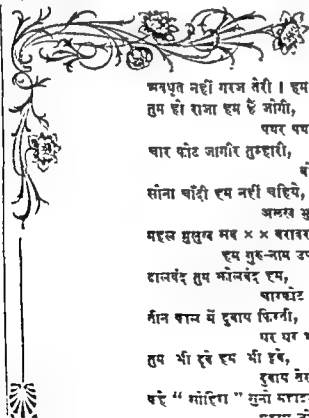 अवधूत नहीं गरज तेरी । हम
तुम हो राजा हम हैं जोगी,
पयर पय
चार कोट जागीर तुम्हारी,
सोना चाँदी हम नहीं चहिये,
अलख
महल मुलुख सब × × बराबर
हम गुरु-नाम उप
ढालबंद तुम झोलबंद हम,
चारकोट
तीन काल में दुवाय फिरती,
घर घर
तुम भी डूबे हम भी डूबे,
दुवाय तेर
कहे “ मोहिरा ” सुनो महारा